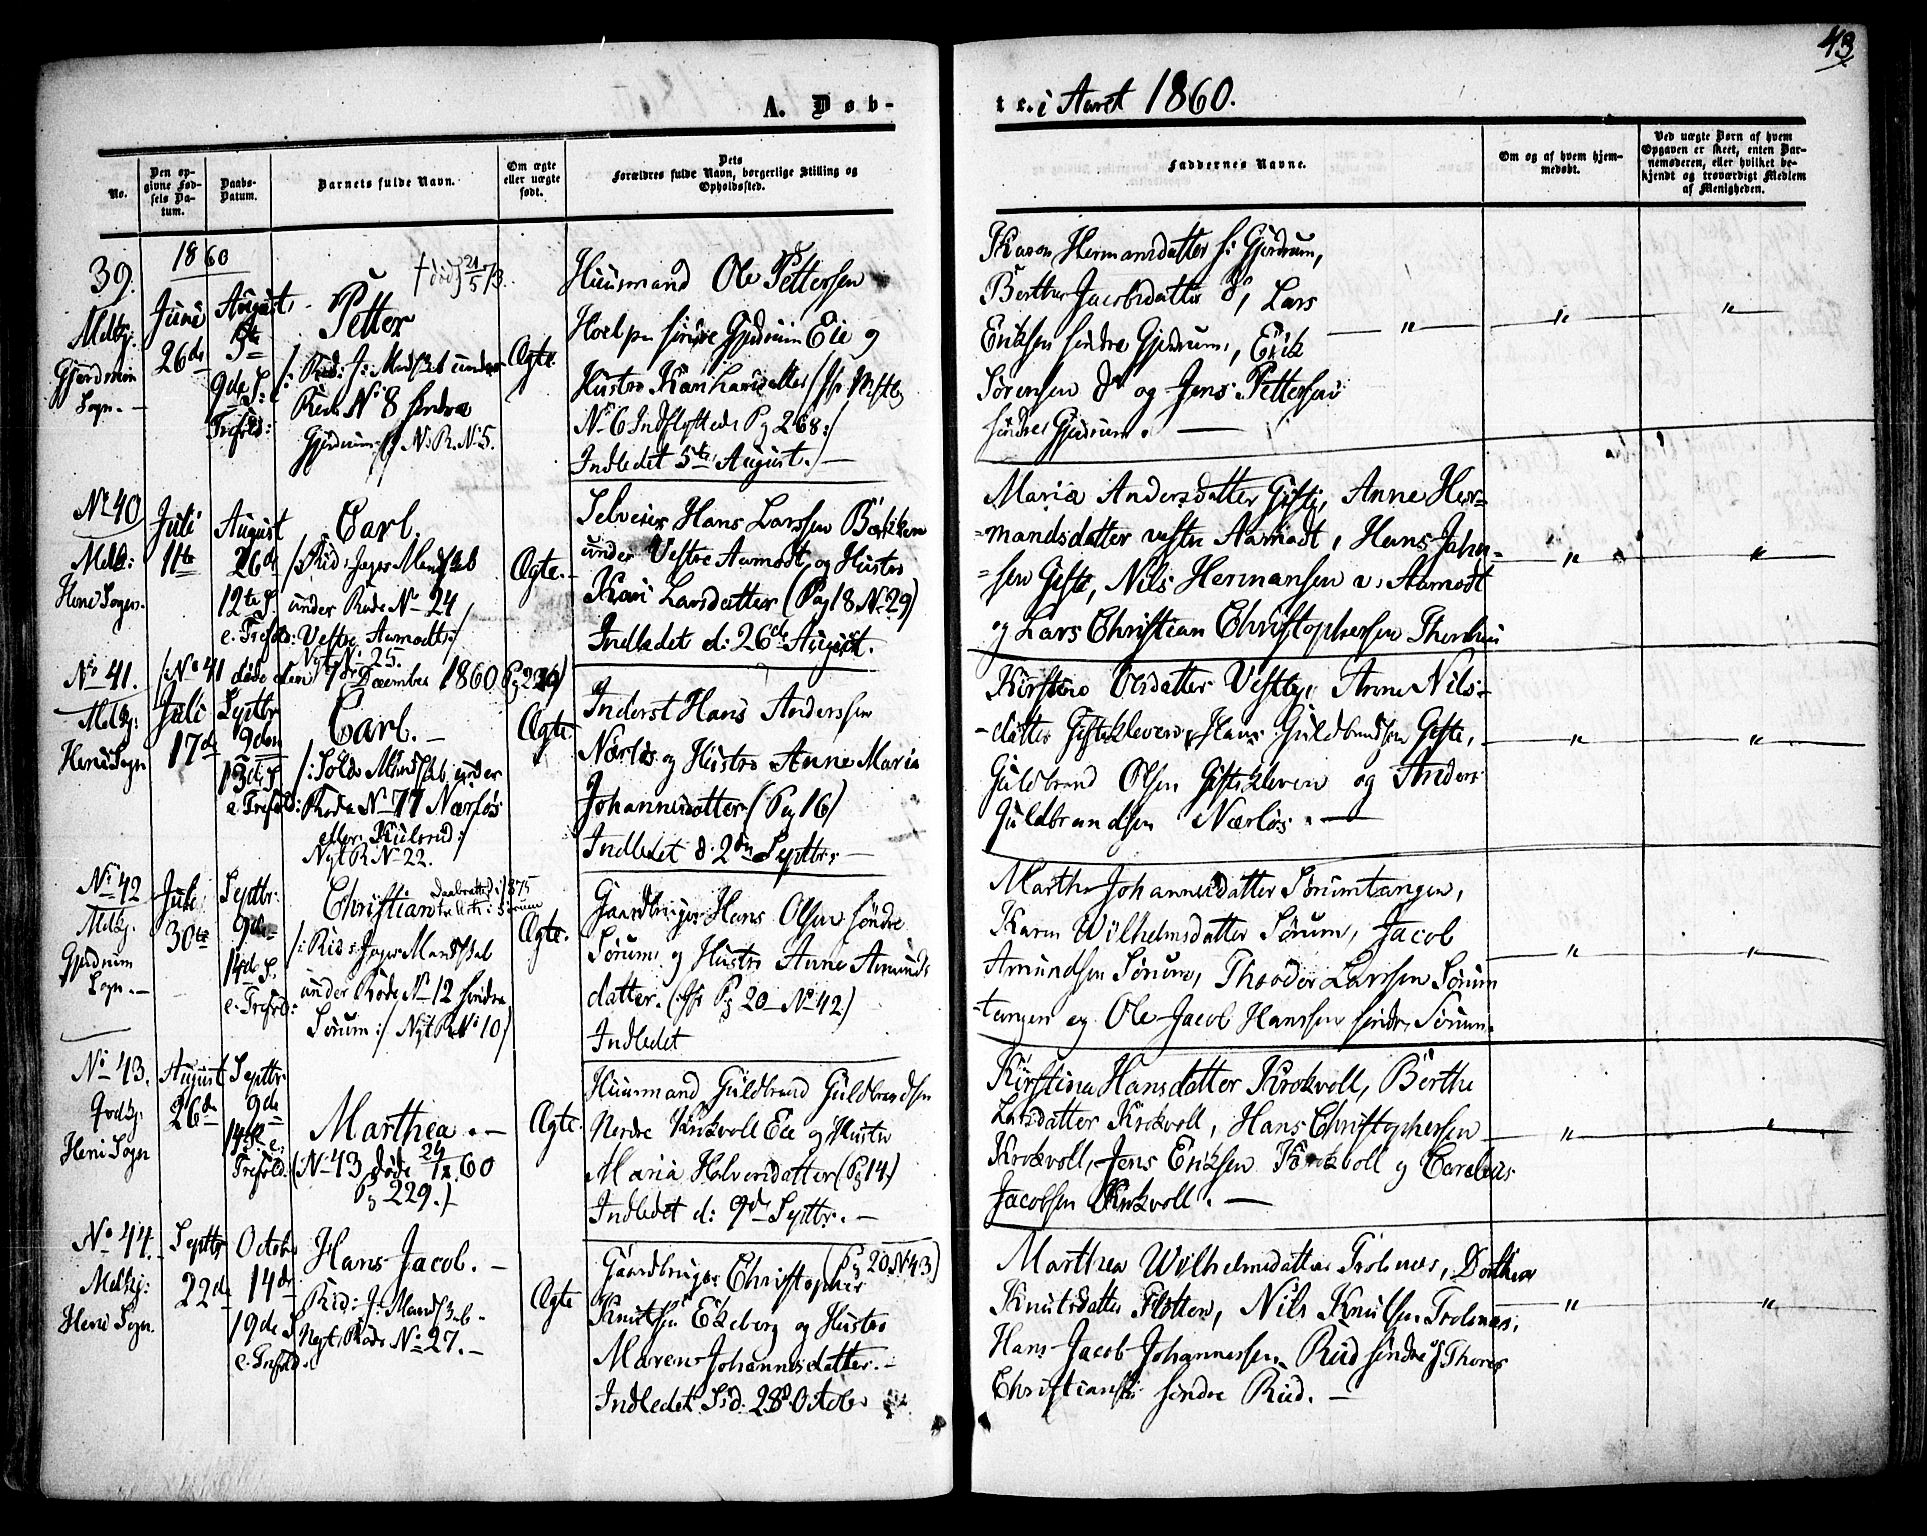 43
A. Døb-
te. i Aaret 1860.
No.
Den op-
givne Fød-
sels Da-
tum.
Daabs-
Datum.
Barnets fulde Navn.
Om ægte
eller uægte
født.
Dets
Forældres fulde Navn, borgerlige Stilling og
Opholdssted.
Faddernes Navne.
Om og af hvem hjem-
medøbt.
Ved uægte Børn af hvem
Opgaven er skeet, enten Bar-
nemoderen, eller hvilket be-
kjendt og troværdigt Medlem
af Menigheden.
1860
39.
Juni
26de
August
9de S. e.
Trefold:
Petter
Gjerdrum
Sogn.
Nº 8 søndre
Gjerdrum N. R. N: 5.
Ægte.
Huusmand Ole Pettersen
søndre Gjerdrum Eie og
Hustro Kari Larsdatter
Nº 6 Indflyttede Pg 268:/
Indledet 5te August./
Karen Hermansdatter s: Gjerdrum,
Berthe Jacobsdatter d°, Lars
Eriksen søndre Gjerdrum, Erik
Sørensen d° og Jens Pettersen
søndre Gjerdrum.
Nº 40
Juli
11te
August
26de
12te S.
e. Trefold:
Carl.
under Rode Nº 24
Vestre Aamodt:/
Nyt R. 25.
Heni Sogn.
Ægte.
Selveier Hans Larssen Bakken
under Vestre Aamodt, og Hustro
Kari Larsdatter (Pag 18 Nº 29)
Indledet d: 26de August.
Maria Andersdatter Gisti, Anne Her-
mandsdatter vestre Aamodt, Hans John-
sen Giste, Nils Hermansen v. Aamodt
og Lars Christian Christophersen
Nº 41.
(Nº 41 døde den 1ste December 1860
Juli
17de
Septbr
9den
13de S.
e. Trefold:
Carl.
Rode Nº 77 Nærløs
eller Kulsrud:/
Nyt R Nº 22.
Heni Sogn
Ægte.
Inderst Hans Anderssen
Nærløs og Hustro Anne Maria
Johannesdatter (Pag 16)
Indledet d: 2den Septbr.
Kirstine Olsdatter Vestby, Anne Nils-
datter Gistekleven, Hans Guldbrandsen Giste,
Guldbrand Olsen Gistekleven og Anders
Guldbrandsen Nærløs.
Nº 42
Juli
30te
Septbr:
9de
14de S.
e. Trefold:
Christian
under Rode Nº 12 søndre
Sørum:/ Nyt R Nº 10)
Gjerdrum
Sogn.
Ægte.
Gaardbruger Hans Olsen søndre
Sørum og Hustro Anne Amunds
datter. (Pg 20 Nº 42)
Indledet
Marthe Johannesdatter Sørumtangen,
Karen Wilhelmsdatter Sørum, Jacob
Amundsen Sørum, Theodor Larssen Sørum
tangen og Ole Jacob Hanssen søndre Sørum.
Nº 43.
August
26de
Septbr.
9de
14de S. e.
Trefold.
Marthea.
(Nº 43 døde 24/12 60
Pg 229.)
Heni Sogn
Ægte.
Huusmand Guldbrand Guldbrandsen
Nordre Krokvoll Eie og Hustro
Maria Halvorsdatter (Pg 14)
Indledet d: 9de Septbr.
Kirstina Hansdatter Krokvoll, Berthe
Larsdatter Krokvoll, Hans Christophersen
Krokvoll, Jens Eriksen Krokvoll og Carelius
Jacobsen Krokvoll.
Nº 44.
Septbr
22de
Octob.
14de
19de S.
e. Trefold.
Hans Jacob.
Rode Nº 27.
Heni Sogn.
Ægte
Gaardbruger Christopher (Pg 20 Nº 43)
Knutsen Ekeberg og Hustro
Maren Johannesdatter.
Indledet d. 28de October
Marthea Wilhelmsdatter Trolsnes, Dorthea
Knutsdatter Flotten, Nils Knutsen Trolsnes,
Hans Jacob Johannessen Rud søndre og Thores
Christiansen søndre Rud.